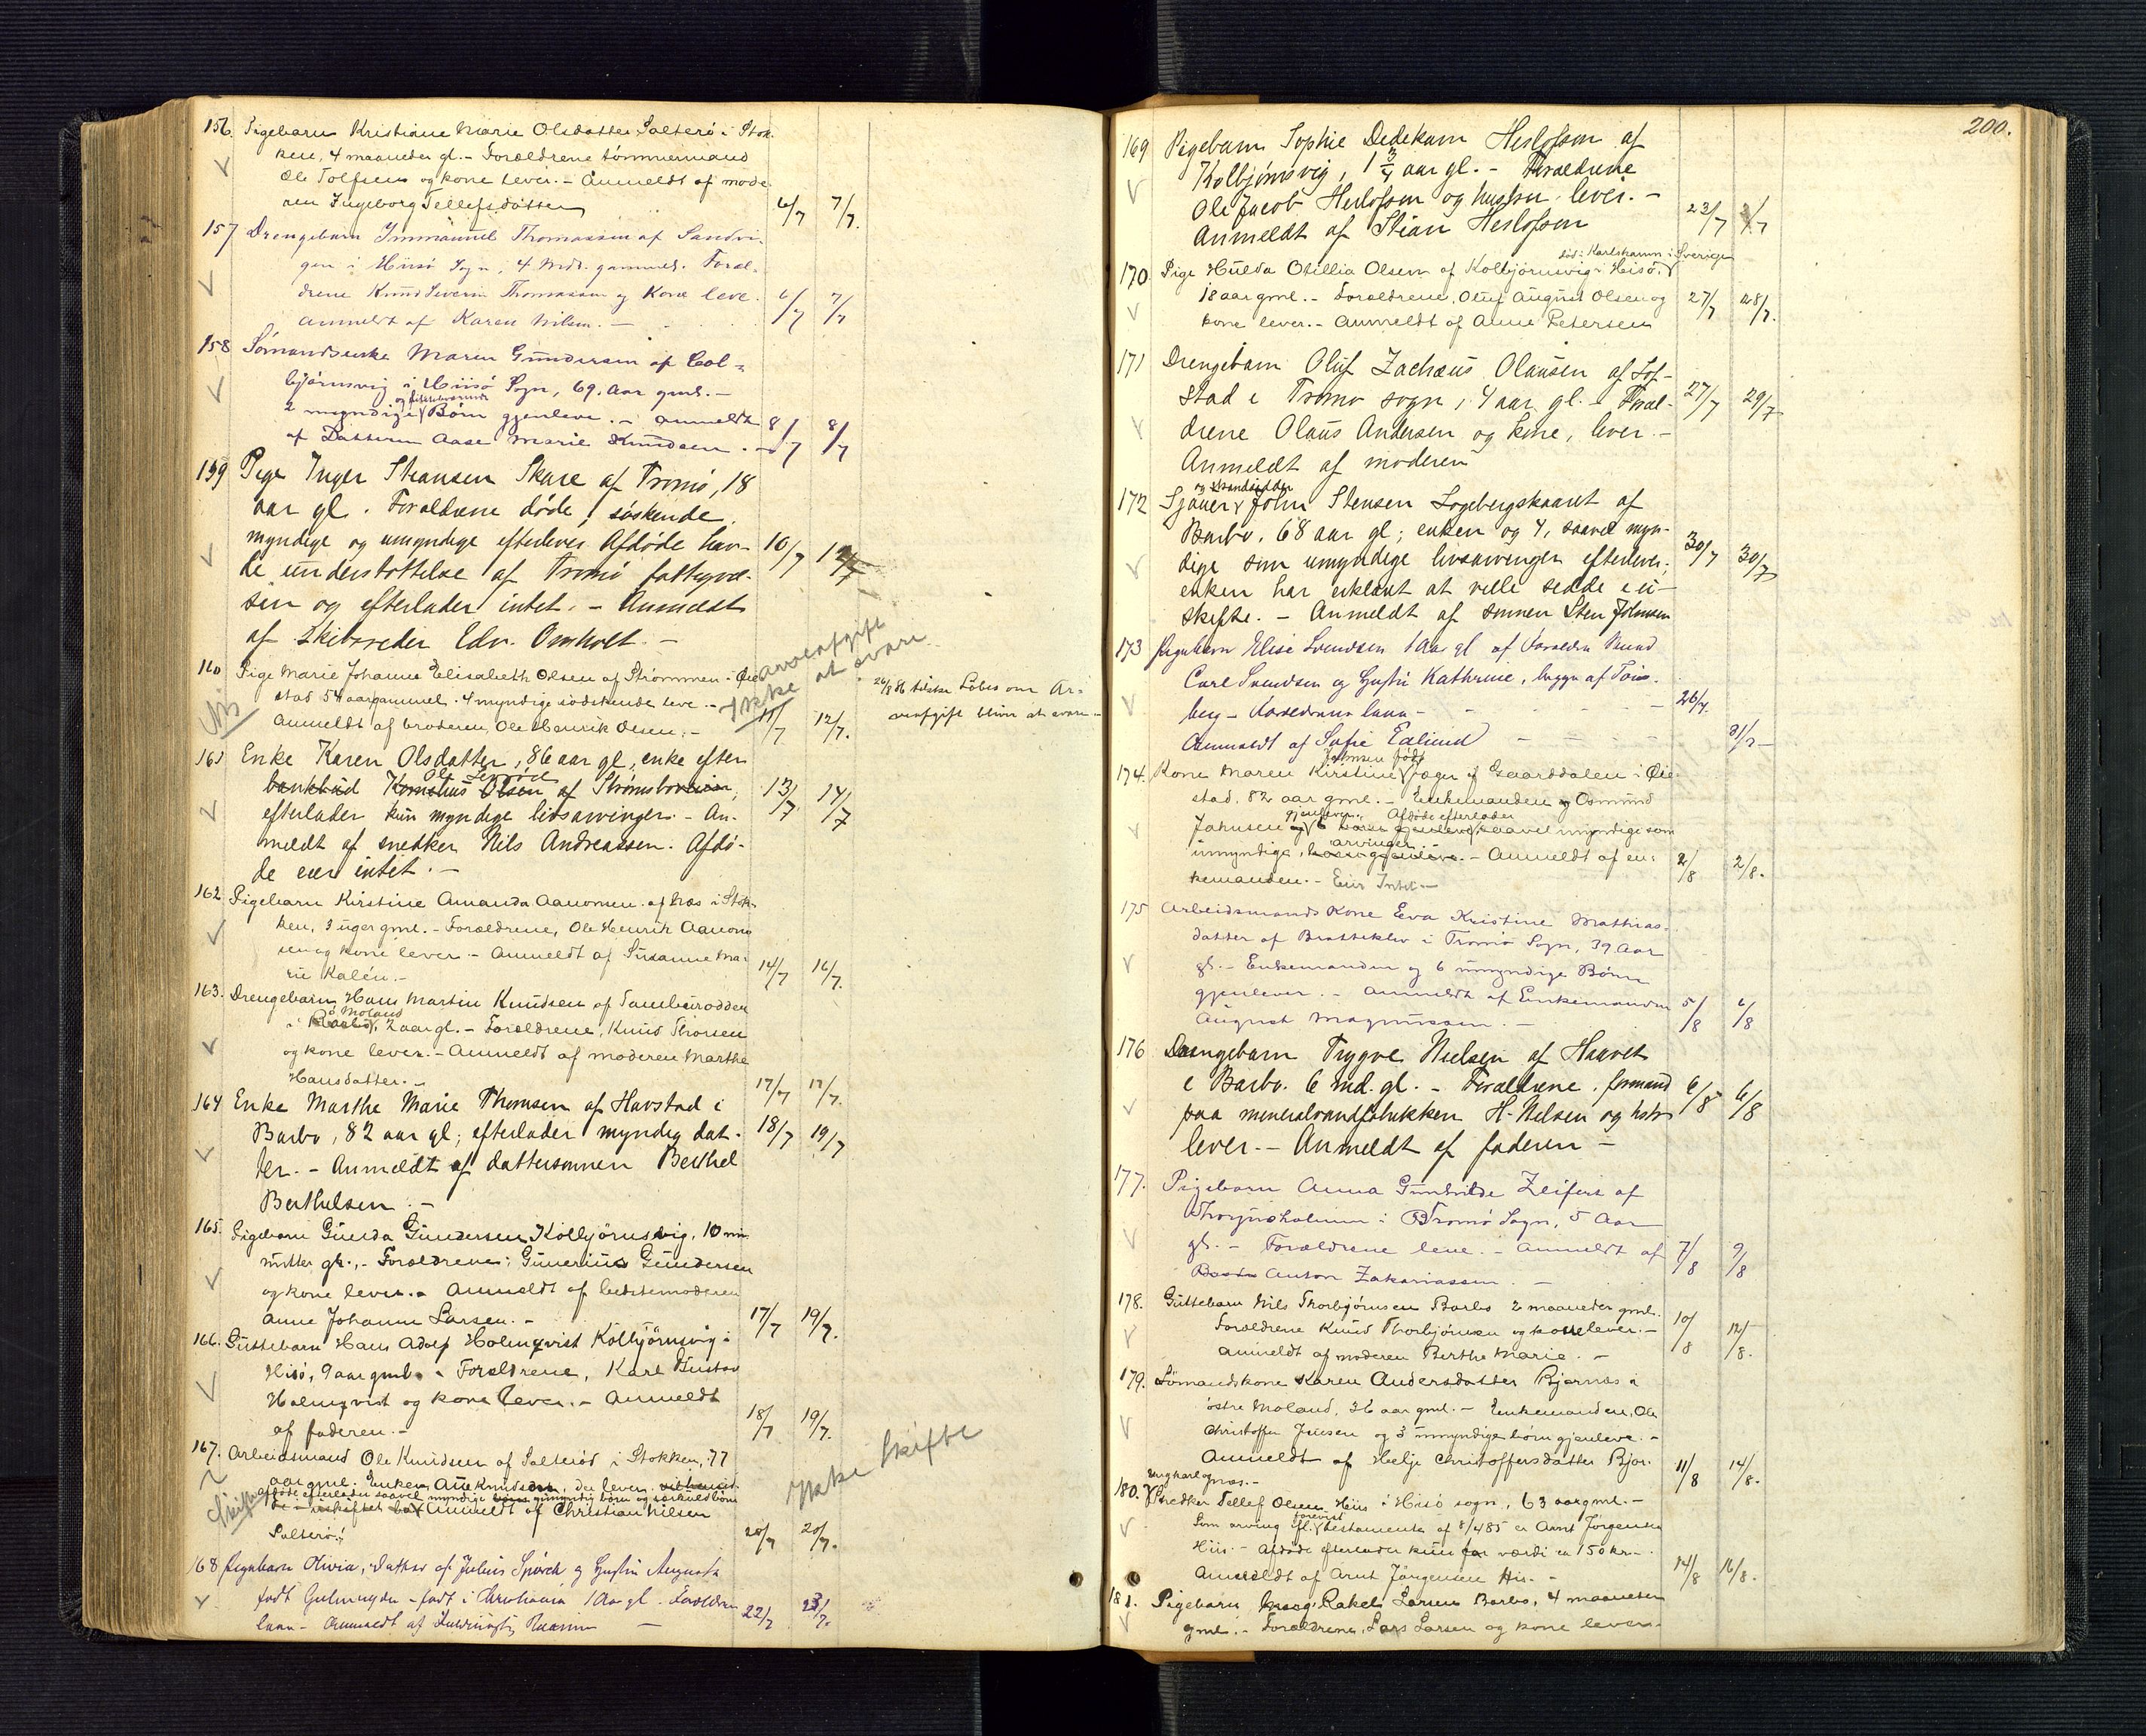 156. Pigebarn Kristiane Marie Olsdatter Salterö i Stok-
ken, 4 maaneder gl. - Forældrene tömmermand
Ole Tolfsen og kone lever. - Anmeldt af mode-
ren Ingeborg Tellefsdatter 6/7 7/7.
157 Drengebarn Immanuel Thomassen af Sandvi-
gen i Hisö Sogn, 4 Mdr. gammel. Foræl-
drene Knud Severin Thomassen og Kone leve.
Anmeldt af Karen Nilsen. - 6/7 7/7
158 Sömandsenke Maren Gundersen af Col-
björnsvig i Hiisö Sogn, 69 Aar gml. -
2 myndige Börn gjenleve. - Anmeldt 8/7 8/7
af Datteren Aase Marie Knudsen. -
159 Pige Inger Stiansen Skare af Tromö, 18
aar gl. Forældrene döde, söskende
myndige og umyndige efterlever. Afdöde hav- 10/7 12/7
de understöttelse af Tromö fattigvæ-
sen og efterlader intet. - Anmeldt
af Skibsreder Edv. Omholt. -
160 Pige Marie Johanne Elisabeth Olsen af Strömmen i Öie-
stad 54 aar gammel. 4 myndige södskende leve. -
Anmeldt af broderen, Ole Henrik Olsen. - 11/7 12/7.
Arveafgift
ikke at svare
26/8 86 tilstr. Löbes om Ar-
veafgift bliver at svare -
161 Enke Karen Olsdatter, 86 aar gl, enke efter
bankbud Kornelius Olsen af Strömsbo
efterlader kun myndige livsarvinger. - An- 13/7 14/7
meldt af snedker Nils Andreassen. Afdö-
de eier intet. -
162 Pigebarn Kirstine Amanda Aanonsen af Næs i Stok-
ken, 3 uger gml. - Forældrene, Ole Henrik Aanon-
sen og kone lever. - Anmeldt af Susanne Ma-
rie Kalén. - 14/7 16/7.
163. Drengebarn Hans Martin Knudsen af Tamburodden
Moland
i Barbo, 2 aar gl. - Forældrene, Knud Thorsen
og kone lever. - Anmeldt af moderen Marthe
Hansdatter. - 17/7 17/7.
164 Enke Marthe Marie Thomsen af Havstad i
Barbo, 82 aar gl; efterlader myndig dat- 18/7 19/7
ter. - Anmeldt af dattersönnen Berthel
Berthelsen. -
165. Pigebarn Gunda Gundersen Kolbjörnsvig, 10 mi-
nutter gl. - Forældrene, Gunerius Gundersen
og kone lever. - Anmeldt af bedstemoderen
Anne Johanne Larsen. - 17/7 19/7.
166. Guttebarn Hans Adolf Holmqvist Kolbjörnsvig i
Hisö, 9 aar gml. - Forældrene, Karl Gustav
Holmqvist og kone lever. - Anmeldt
af faderen. - 18/7 19/7.
167. Arbeidsmand Ole Knudsen af Salteröd i Stokken, 77
aar gml. Enken, Ane Knudsen, der lever.
afdöde efterlader saavel myndige umyndig börn og særkuldbörn
Anmeldt af Christian Nilsen
Salterö. - 20/7 20/7.
Skifte
Ikke Skifte
168 Pigebarn Olivia, Datter af Julius Spörck og Hustru Augusta
födt Gulmoyden - födt i Christiania 1 Aar gl - Forældrene
leve - Anmeldt af 22/7 23/7.
200.
169 Pigebarn Sophie Dedekam Herlofson af
Kolbjörnsvig, 1 3/4 aar gl. - Forældrene
Ole Jacob Herlofson og hustru, lever. -
Anmeldt af Stian Herlofson 23/7
död i Karlshamn i Sverige
170. Pige Hulda Otillia Olsen af Kolbjörnsvig i Hisö,
18 aar gml. - Forældrene, Oluf August Olsen og 27/7 28/7.
kone lever. - Anmeldt af Anne Petersen
171 Drengebarn Oluf Zachæus Olausen af Lof-
stad i Tromö sogn, 4 aar gl. - Foræl- 27/7 29/7
drene Olaus Andersen og kone, lever. -
Anmeldt af moderen
og strandsidder
172 Sjauer John Stensen Logebergskaaret af
Barbo, 68 aar gl; enken og 4, saavel myn- 30/7 30/7
dige som umyndige livsarvinger efterlever;
enken har erklært at ville sidde i u-
skifte. - Anmeldt af sönnen Sten Johnsen
173 Pigebarn Elise Svendsen 1 Aar gl af Forældre
Carl Svendsen og Hustru Kathrine, begge af Töns-
berg - Forældrene leve - 26/7.
Anmeldt af Sofie Edlund 31/7 -
Johnsen född
174. Kone Maren Kirstine Jæger af Gaarddalen i Öie-
stad, 82 aar gml. - Enkemanden Osmund
gjenlever. Afdöde efterlader
Johnsen saavel myndige som
arvinger
umyndige. - Anmeldt af en- 2/8 2/8.
kemanden. - Eier Intet. -
175 Arbeidsmands Kone Eva Kristine Mathias-
datter af Bratteklev i Tromö Sogn, 39 Aar
gl. - Enkemanden og 6 umyndige Börn
gjenlever. - Anmeldt af Enkemanden 5/8 6/8
August Magnussen. -
176 Drengebarn Trygve Nielsen af Haavet
i Barbo. 6 md. gl. - Forældrene, formand 6/8 6/8
paa mineralvandfabrikken H. Nilsen og hstr
lever. - Anmeldt af faderen -
177. Pigebarn Anna Gunhilde Zeifert af
Thorjusholmen i Tromö Sogn, 5 Aar
gl. - Forældrene leve. - Anmeldt af 7/8 9/8
Anton Zakariassen. -
178. Guttebarn Nils Thorbjörnsen Barbo 2 maaneder gml.
Forældrene Knud Thorbjörnsen og kone lever. - 10/8 12/8.
Anmeldt af moderen Berthe Marie. -
179. Sömandskone Karen Andersdatter Bjornæs i
östre Moland, 36 aar gml. - Enkemanden, Ole
Christoffer Jensen og 3 umyndige börn gjenleve. -
Anmeldt af Helje Christoffersdatter Bjor-
næs. - 11/8 14/8.
Ungkarl og
180. Snedker Tellef Olsen His i Hisö sogn, 63 aar gml. -
Som arving ifl. forevist testamente af 8/4 85 er Arnt Jörgensen
His. - Afdöde efterlader kun værdi ca 150 kr. -
Anmeldt af Arnt Jörgensen His. - 14/8 16/8.
181. Pigebarn Rakel Larsen Barbo, 4 maaneder
gml. - Forældrene, Lars Larsen og kone lever. -